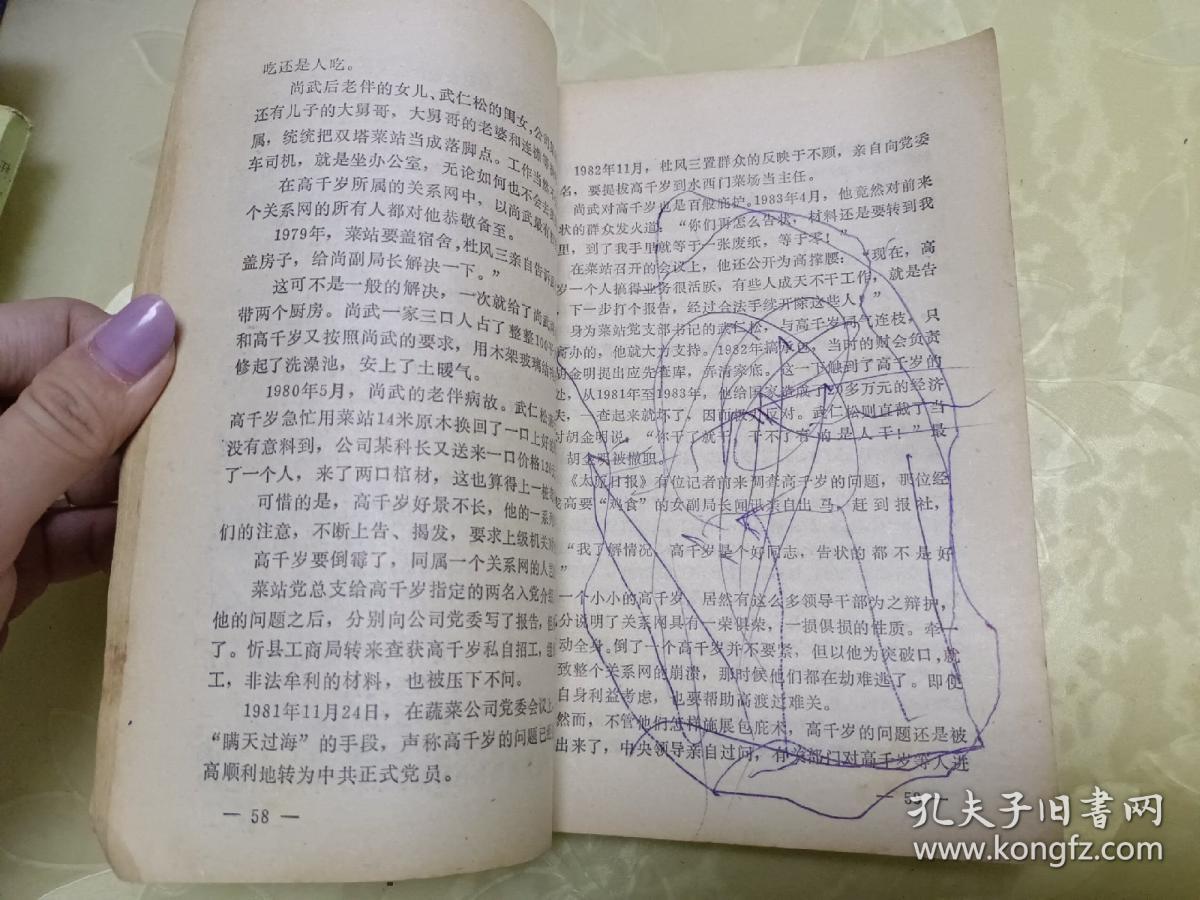 吃还是人吃。
尚武后老伴的女儿、武仁松的闺女,公司
还有儿子的大舅哥,大舅哥的老婆和连襟等
属,统统把双塔菜站当成落脚点。工作当然
车司机,就是坐办公室,无论如何也不会去
在高千岁所属的关系网中,以尚武最有
个关系网的所有人都对他恭敬备至。
1979年,菜站要盖宿舍,杜风三亲自告诉
盖房子,给尚副局长解决一下。”
这可不是一般的解决,一次就给了尚武
带两个厨房。尚武一家三口人占了整整100平
和高千岁又按照尚武的要求,用木架玻璃给
修起了洗澡池,安上了土暖气。
1980年5月,尚武的老伴病故。武仁松
高千岁急忙用菜站14米原木换回了一口上好
没有意料到,公司某科长又送来一口价格12
了一个人,来了两口棺材,这也算得上一桩
可惜的是,高千岁好景不长,他的一系列
们的注意,不断上告、揭发,要求上级机关
高千岁要倒霉了,同属一个关系网的人
菜站党总支给高千岁指定的两名入党介绍
他的问题之后,分别向公司党委写了报告,
了。忻县工商局转来查获高千岁私自招工,
工,非法牟利的材料,也被压下不问。
1981年11月24日,在蔬菜公司党委会议上
“瞒天过海”的手段,声称高千岁的问题已
高顺利地转为中共正式党员。
— 58 —
1982年11月,杜风三置群众的反映于不顾,亲自向党委
名,要提拔高千岁到水西门菜场当主任。
尚武对高千岁也是百般庇护。1983年4月,他竟然对前来
状的群众发火道:“你们再怎么告状,材料还是要转到我
里,到了我手里就等于一张废纸,等于零!”
在菜站召开的会议上,他还公开为高撑腰:“现在,高
岁一个人搞得业务很活跃,有些人成天不干工作,就是告
,下一步打个报告,经过合法手续开除这些人!”
身为菜站党支部书记的武仁松,与高千岁同气连枝,只
高办的,他就大力支持。1982年搞承包,当时的财会负责
胡金明提出应先查库,弄清家底。这一下触到了高千岁的
处,从1981年至1983年,他给国家造成了20多万元的经济
失,一查起来就坏了,因而极力反对。武仁松则直截了当
对胡金明说,“你干了就干,干不了有的是人干!”最
胡金明被撤职。
《太原日报》有位记者前来调查高千岁的问题,那位经
高要“鸡食”的女副局长闻讯亲自出马,赶到报社,
“我了解情况,高千岁是个好同志,告状的都不是好
”
一个小小的高千岁,居然有这么多领导干部为之辩护,
分说明了关系网具有一荣俱荣,一损俱损的性质。牵一
动全身。倒了一个高千岁并不要紧,但以他为突破口,就
致整个关系网的崩溃,那时候他们都在劫难逃了。即使
自身利益考虑,也要帮助高渡过难关。
然而,不管他们怎样施展包庇术,高千岁的问题还是被
出来了,中央领导亲自过问,有关部门对高千岁等人进
— 59 —
孔夫子旧书网
www.kongfz.com